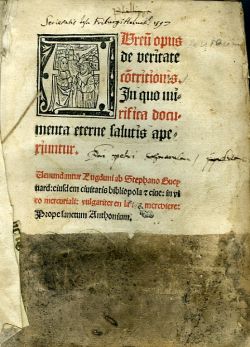 Societatis Jesu Friburgi Helvet: 1597
Aureū opus
de veritate
cōtritionis.
In quo mi-
rifica docu-
menta eterne salutis ape-
riuntur.
Venundantur Lugduni ab Stephano Guey
nard: eiusdem ciuitatis bibliopola & ciue: in vi
co mercuriali: vulgariter en la rue merciere:
Prope sanctum Anthonium.